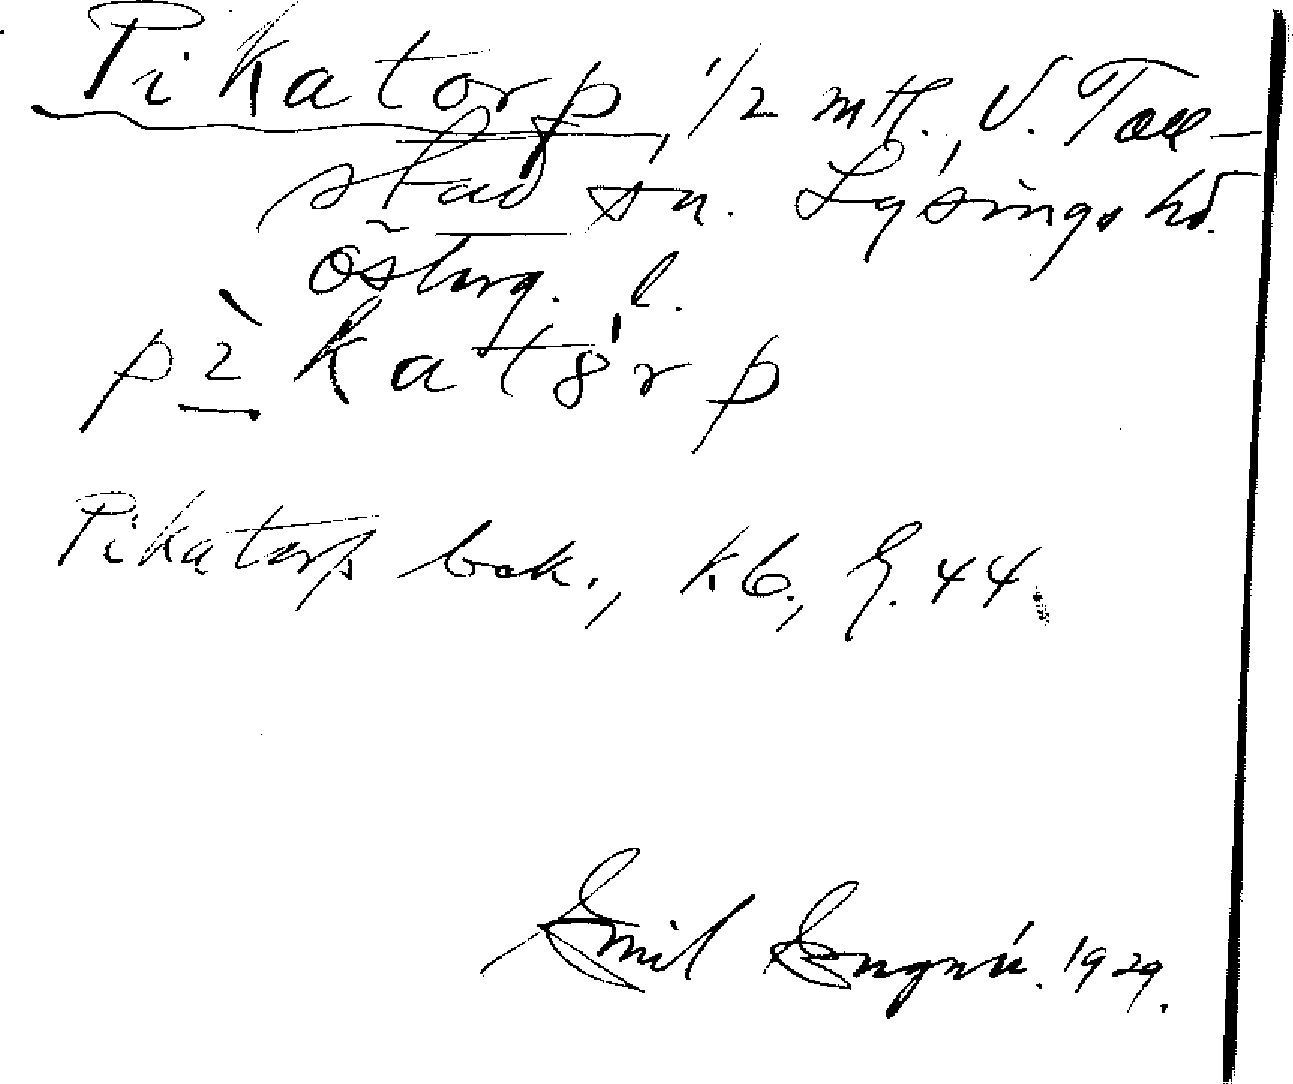 Pikatorp, 1/2 mtl. V. Toll-
stad sn. Lysings hd.
Österg. l.
pìkatörp
Pikatorp bek., kb, 44.
Emil 1929.